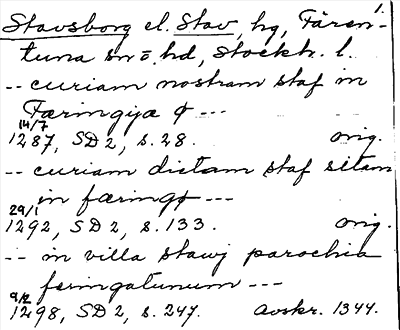 1.
Stavsborg el. Stav, hg, Fären-
tuna sn o. hd, Stockh. l.
-- curiam nostram staf in
Færingiæ ø ---
14/7
1287, SD 2, s. 28. orig.
-- curiam dictam staf sitam
in færingø ---
29/1
1292, SD 2, s. 133. orig.
-- in villa stawj parochia
feringatunum ---
9/2
1298, SD 2, s. 247. avskr. 1344.